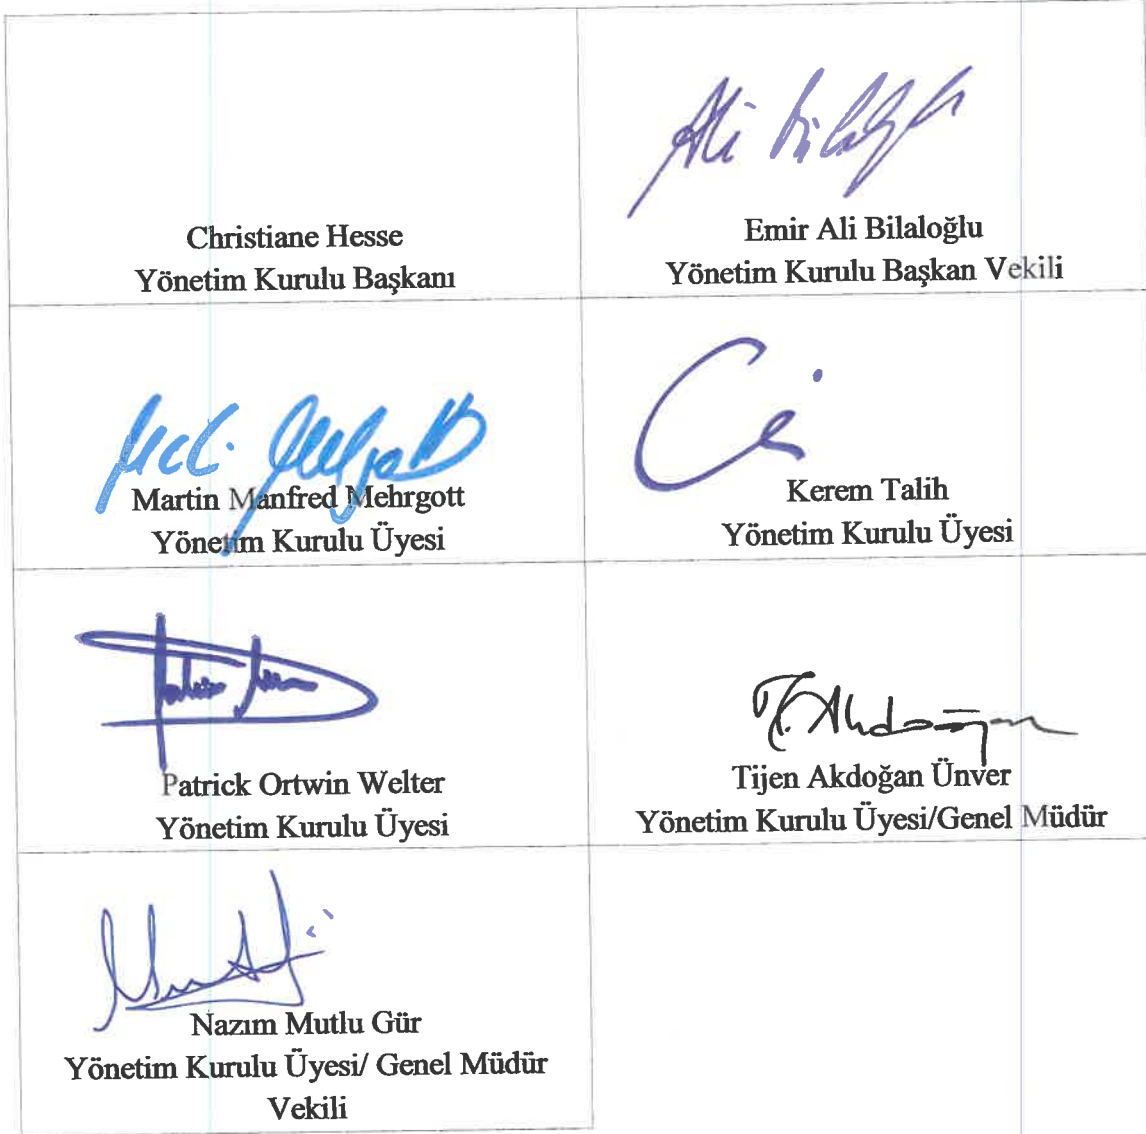 Christiane Hesse
Yönetim Kurulu Başkanı
Ali
Emir Ali Bilaloğlu
Yönetim Kurulu Başkan Vekili
Martin Manfred Mehrgott
Yönetim Kurulu Üyesi
Kerem Talih
Yönetim Kurulu Üyesi
Patrick Ortwin Welter
Yönetim Kurulu Üyesi
T. Akdoğan
Tijen Akdoğan Ünver
Yönetim Kurulu Üyesi/Genel Müdür
Nazım Mutlu Gür
Yönetim Kurulu Üyesi/ Genel Müdür
Vekili